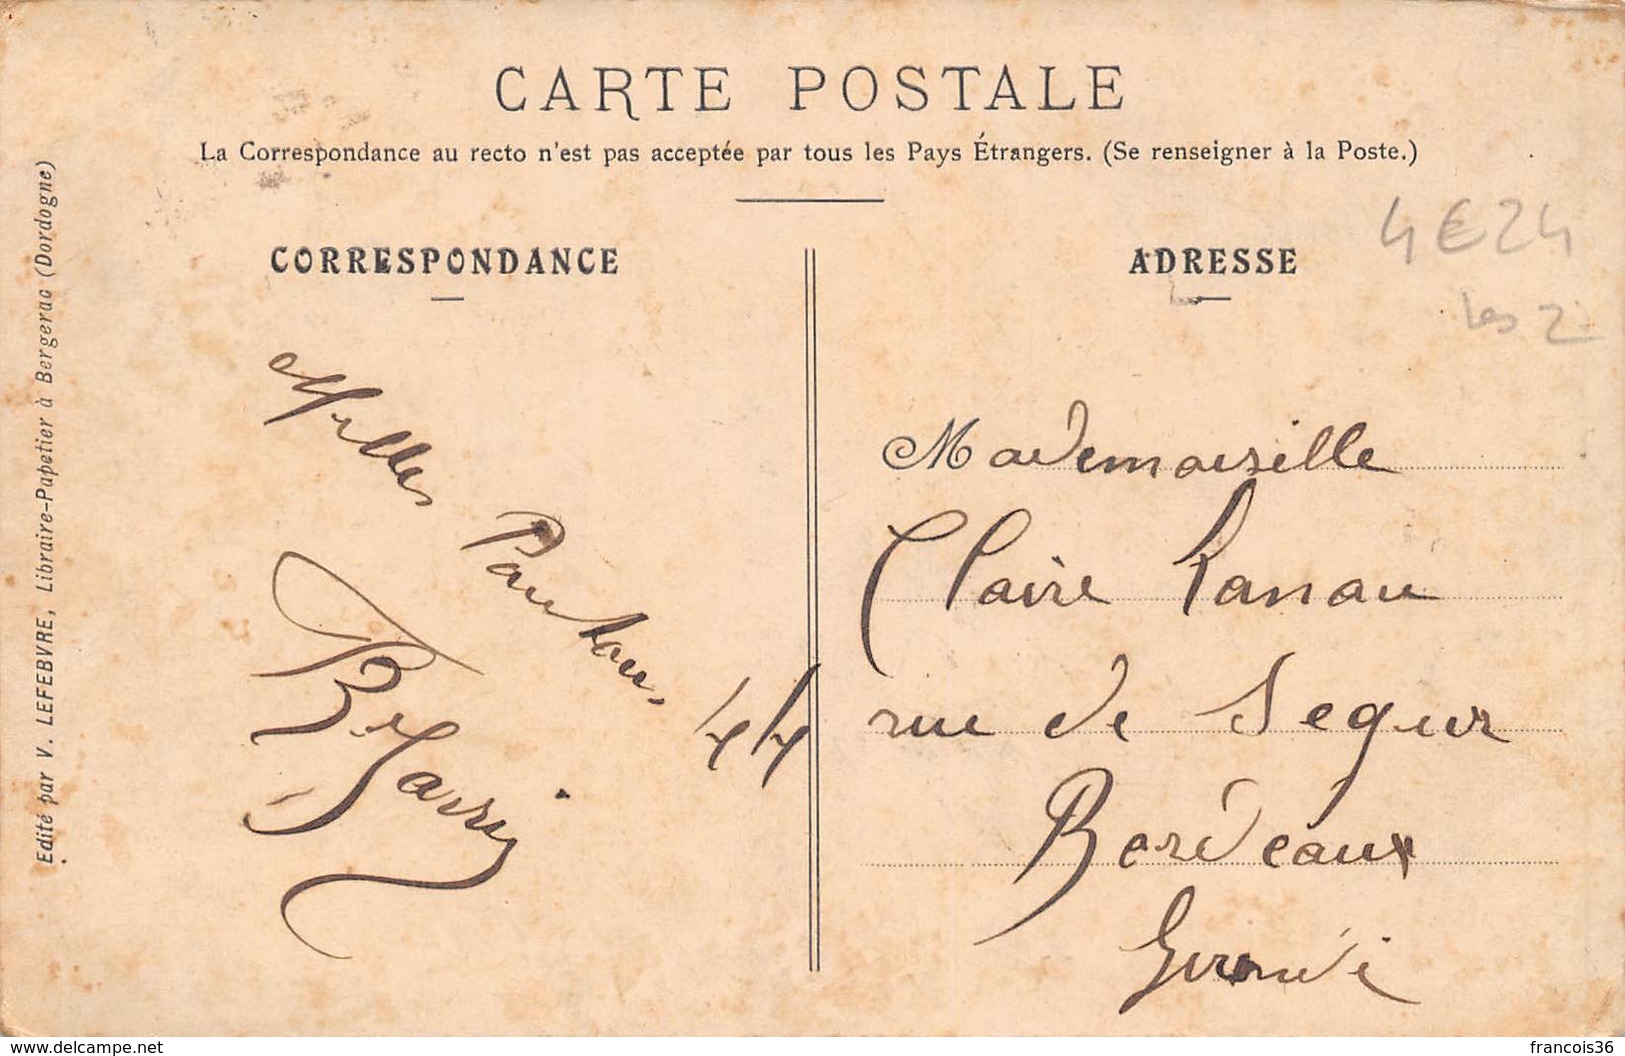 CARTE POSTALE
La Correspondance au recto n'est pas acceptée par tous les Pays Étrangers. (Se renseigner à la Poste.)
Edité par V. LEFEBVRE, Libraire-Papetier à Bergerac (Dordogne)
CORRESPONDANCE
ADRESSE
4€24
les 2
Mademoiselle
Claire Lanau
rue de Segur
Bordeaux
Gironde
www.delcampe.net
francois36